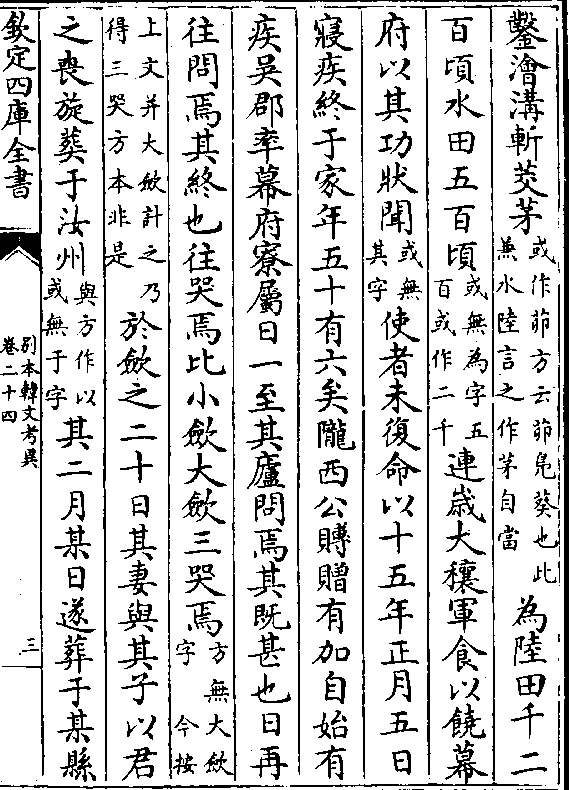 鑿澮溝斬茭茅或作茆方云茆鳬葵也此兼水陸言之作茅自當為陸田千二
百頃水田五百頃或無為字五百或作二千連歲大穰軍食以饒幕
府以其功狀聞或無其字使者未復命以十五年正月五日
寢疾終于家年五十有六矣隴西公賻贈有加自始有
疾吳郡率幕府寮屬日一至其廬問焉其既甚也日再
往問焉其終也往哭焉比小斂大斂三哭焉方無大斂字今按
上文并大斂計之乃得三哭方本非是於斂之二十日其妻與其子以君
之喪旋葬于汝州與方作以或無于字其二月某日遂葬于某縣
欽定四庫全書
別本韓文考異
卷二十四
三